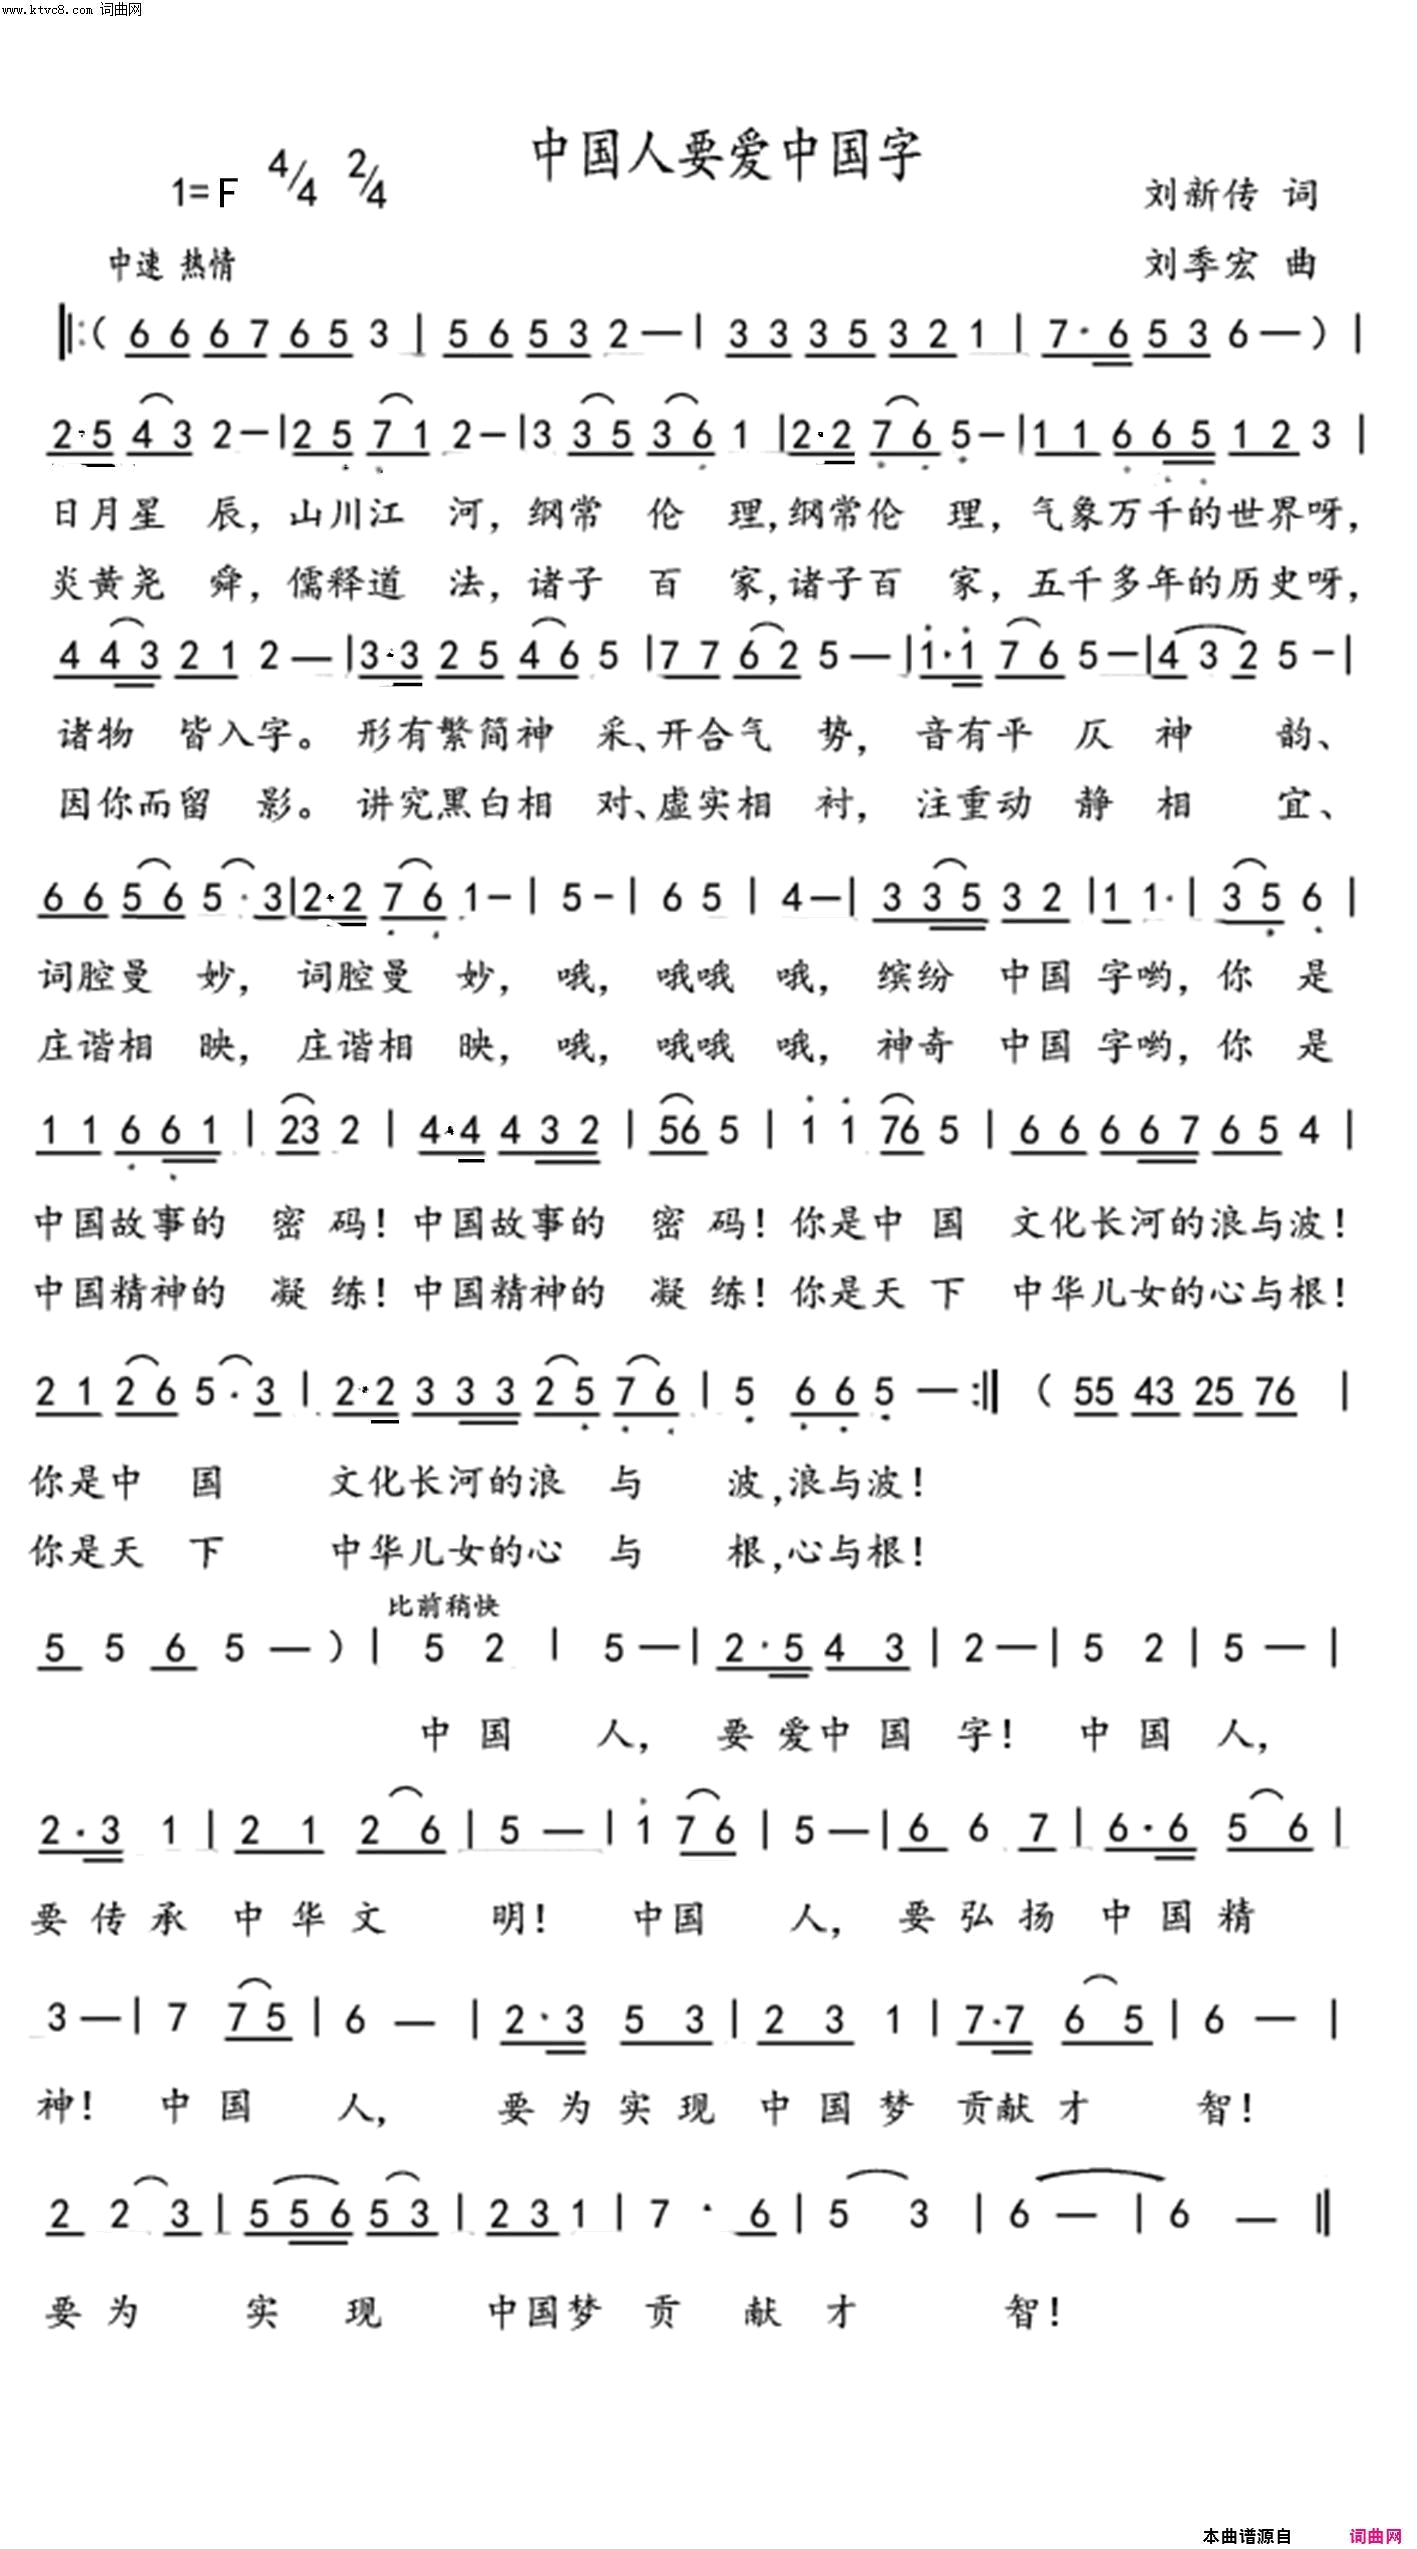 www.ktvc8.com 词曲网
中国人要爱中国字
1=F 4/4 2/4
刘新传 词
中速 热情
刘季宏 曲
‖:( 6 6 6 7 6 5 3 | 5 6 5 3 2 — | 3 3 3 5 3 2 1 | 7· 6 5 3 6 — ) |
2·5 4 3 2 — | 2 5 7 1 2 — | 3 3 5 3 6 1 | 2·2 7 6 5 — | 1 1 6 6 5 1 2 3 |
日月星 辰, 山川江 河, 纲常 伦 理, 纲常伦 理, 气象万千的世界呀,
炎黄尧 舜, 儒释道 法, 诸子 百 家, 诸子百 家, 五千多年的历史呀,
4 4 3 2 1 2 — | 3·3 2 5 4 6 5 | 7 7 6 2 5 — | 1·1 7 6 5 — | 4 3 2 5 — |
诸物 皆入字。 形有繁简神 采、开合气 势, 音有平 仄 神 韵、
因你而留 影。 讲究黑白相 对、虚实相 衬, 注重动 静 相 宜、
6 6 5 6 5 · 3 | 2·2 7 6 1 — | 5 — | 6 5 | 4 — | 3 3 5 3 2 | 1 1· | 3 5 6 |
词腔曼 妙, 词腔曼 妙, 哦, 哦哦 哦, 缤纷 中国 字哟, 你 是
庄谐相 映, 庄谐相 映, 哦, 哦哦 哦, 神奇 中国 字哟, 你 是
1 1 6 6 1 | 23 2 | 4·4 4 3 2 | 56 5 | 1 1 76 5 | 6 6 6 6 7 6 5 4 |
中国故事的 密 码! 中国故事的 密 码! 你是中 国 文化长河的浪与波!
中国精神的 凝 练! 中国精神的 凝 练! 你是天 下 中华儿女的心与根!
2 1 2 6 5 · 3 | 2·2 3 3 3 2 5 7 6 | 5 6 6 5 — :‖ ( 55 43 25 76 |
你是中 国 文化长河的浪 与 波, 浪与波!
你是天 下 中华儿女的心 与 根, 心与根!
比前稍快
5 5 6 5 — ) | 5 2 | 5 — | 2·5 4 3 | 2 — | 5 2 | 5 — |
中 国 人, 要 爱中 国 字! 中 国 人,
2·3 1 | 2 1 2 6 | 5 — | 1 7 6 | 5 — | 6 6 7 | 6·6 5 6 |
要 传 承 中 华 文 明! 中国 人, 要 弘 扬 中 国 精
3 — | 7 7 5 | 6 — | 2·3 5 3 | 2 3 1 | 7·7 6 5 | 6 — |
神! 中 国 人, 要 为 实 现 中 国 梦 贡献 才 智!
2 2 3 | 5 5 6 5 3 | 2 3 1 | 7 · 6 | 5 3 | 6 — | 6 — ‖
要 为 实 现 中国梦 贡 献 才 智!
本曲谱源自 词曲网